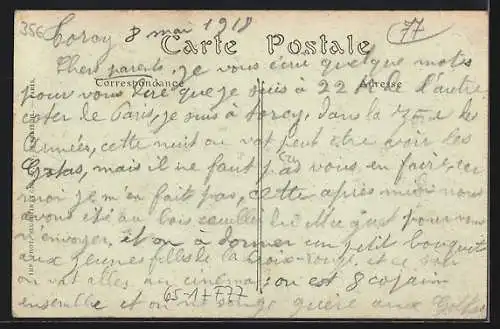 35€
Torcy 8 mai 1918
77
Carte Postale
Chers parents, je vous écri quelque motes
Correspondance
Adresse
pour vous dire que je suis à 22 de l'autre
coter de Paris, je suis à Torcy, dans la zone des
Armées, cette nuit on vat peut être voir les
Gotas, mais il ne faut pas vous en faire, car
moi je m'en fait pas, cette après midi nous
avons été au bois ceuillir du Muguet pour vous
l'envoyer, et on à donner un petit bouquet
aux jeunes filles de la Croix-Rouge, et ce soir
on vat alles au cinéma, on est 8 copain
ensemble et on ne songe guère aux Gothas
65-17 F77